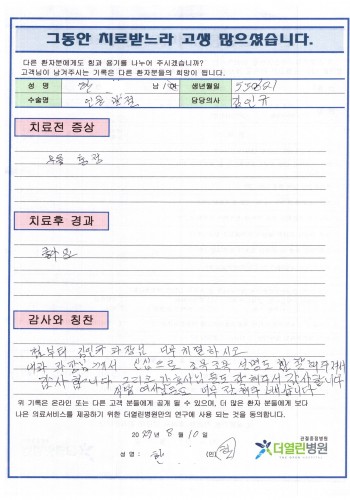 그동안 치료받느라 고생 많으셨습니다.
다른 환자분에게도 힘과 용기를 나누어 주시겠습니까?
고객님이 남겨주시는 기록은 다른 환자분들의 희망이 됩니다.
성 명 한 남 / 여 생년월일 550621
수술명 담당의사 김민규
치료전 증상
우측 통증
치료후 경과
좋아짐
감사와 칭찬
전부터 김민규 과장님 너무 친절하시고
내과 과장님께서 진심으로 조목조목 설명도 잘 해주셔서
감사합니다. 그리고 간호사님들도 잘 해주셔서 감사합니다
식당 여사님들도 너무 잘해 주셨습니다
위 기록은 온라인 또는 다른 고객 분들에게 공개 될 수 있으며, 더 많은 환자 분들에게 보다
나은 의료서비스를 제공하기 위한 더열린병원만의 연구에 사용 되는 것을 동의합니다.
2024년 8월 10일
성 명 : 한 (인)
관절중점병원
더열린병원